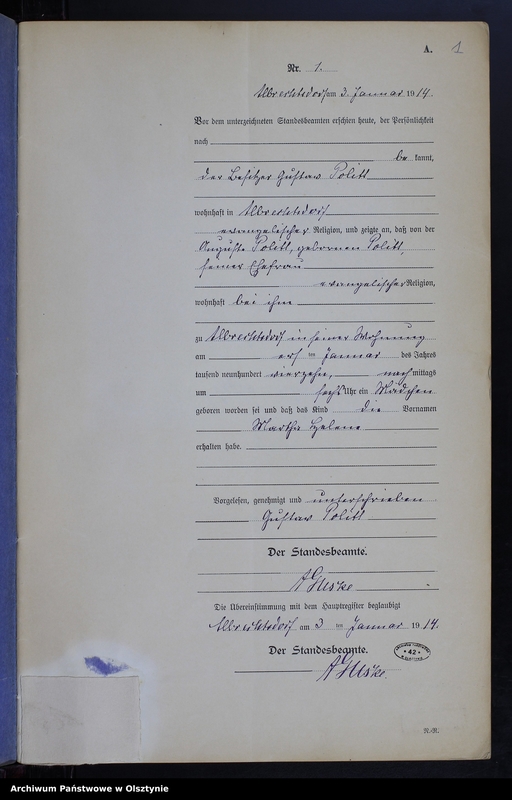 A. 1
Nr. 1.
Albrechtsdorf am 3. Januar 1914.
Vor dem unterzeichneten Standesbeamten erschien heute, der Persönlichkeit
nach
be kannt,
der Besitzer Gustav Politt
wohnhaft in Albrechtsdorf
evangelischer Religion, und zeigte an, daß von der
Auguste Politt, geborenen Politt,
seiner Ehefrau
evangelischer Religion,
wohnhaft bei ihm
zu Albrechtsdorf in seiner Wohnung
am ersten Januar des Jahres
tausend neunhundert vierzehn, nachmittags
um sechs Uhr ein Mädchen
geboren worden sei und daß das Kind die Vornamen
Martha Helene
erhalten habe.
Vorgelesen, genehmigt und unterschrieben
Gustav Politt
Der Standesbeamte.
Die Übereinstimmung mit dem Hauptregister beglaubigt
Albrechtsdorf am 3 ten Januar 1914.
Der Standesbeamte.
42
Archiwum Państwowe w Olsztynie